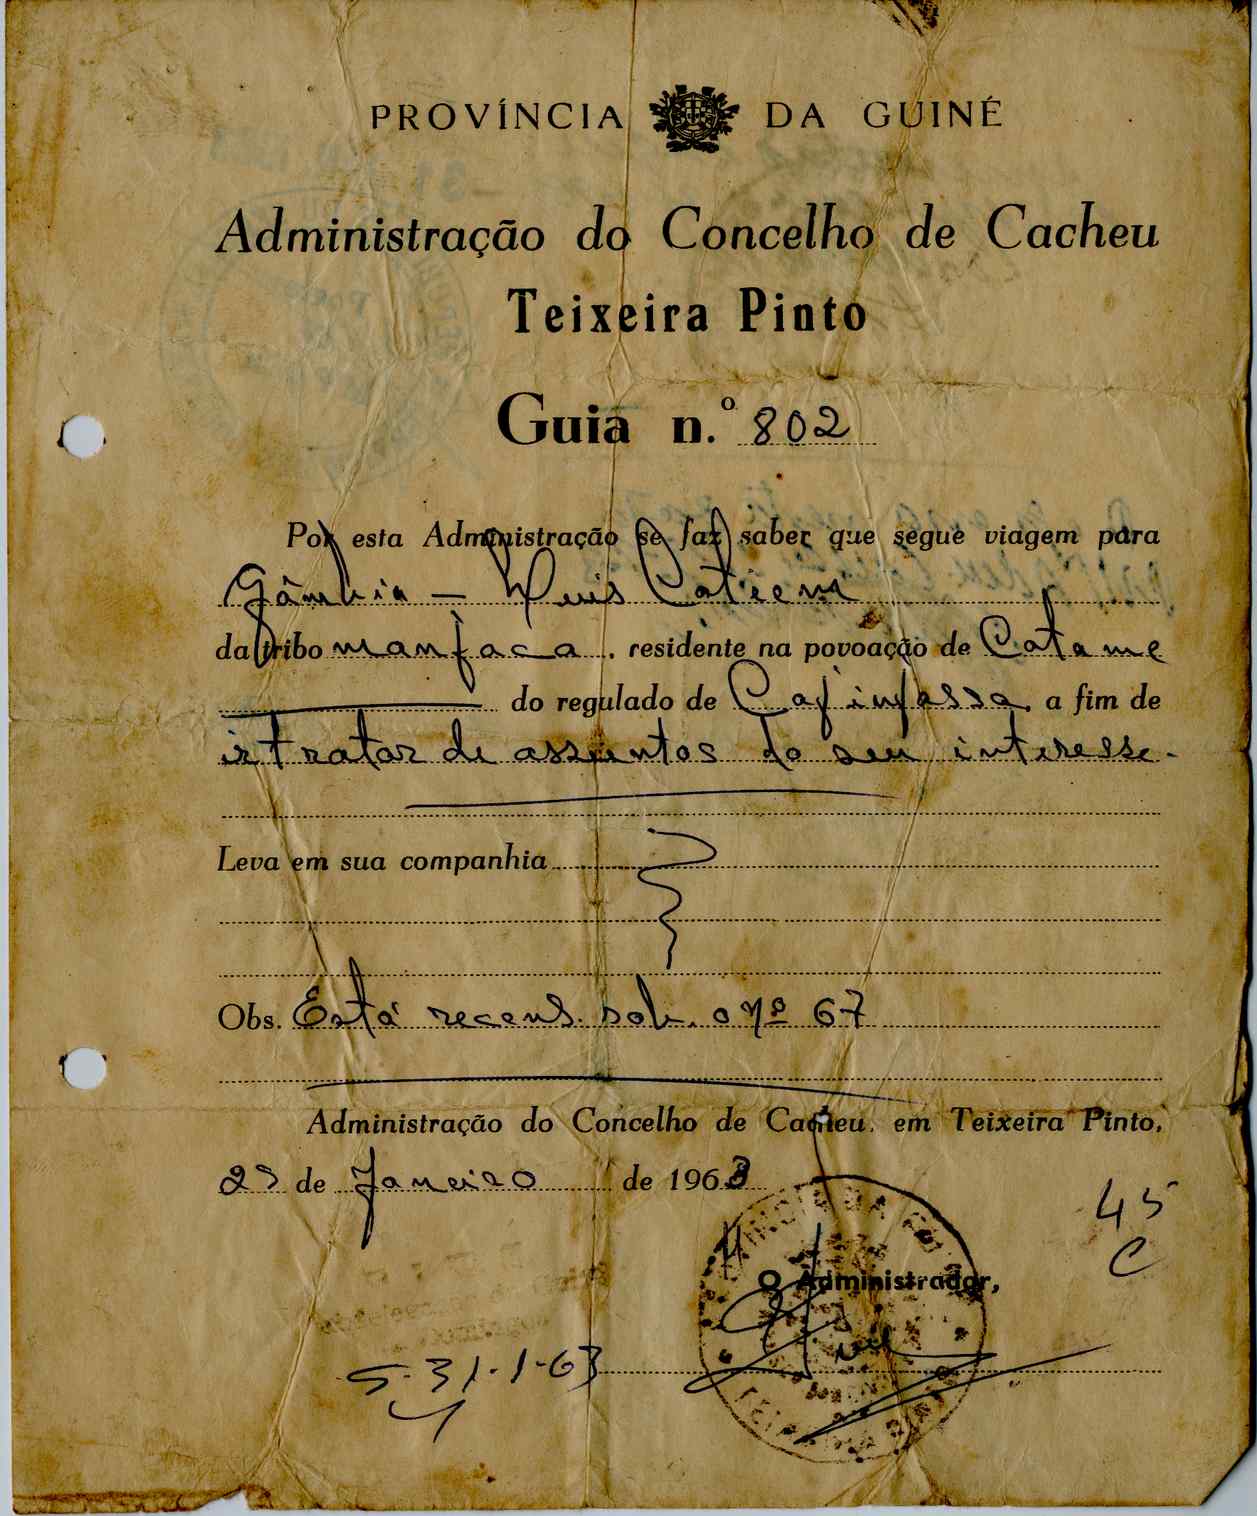 PROVÍNCIA DA GUINÉ
Administração do Concelho de Cacheu
Teixeira Pinto
Guia n.º 802
Por esta Administração se faz saber que segue viagem para
Gâmbia — Luis Catiem
da tribo manjaca, residente na povoação de Catame
do regulado de Cajinjassa, a fim de
ir tratar de assuntos do seu interesse.
Leva em sua companhia
Obs. Está recens. sob. o nº 67
Administração do Concelho de Cacheu, em Teixeira Pinto,
23 de Janeiro de 1963
45
C
O Administrador,
S. 31-1-63